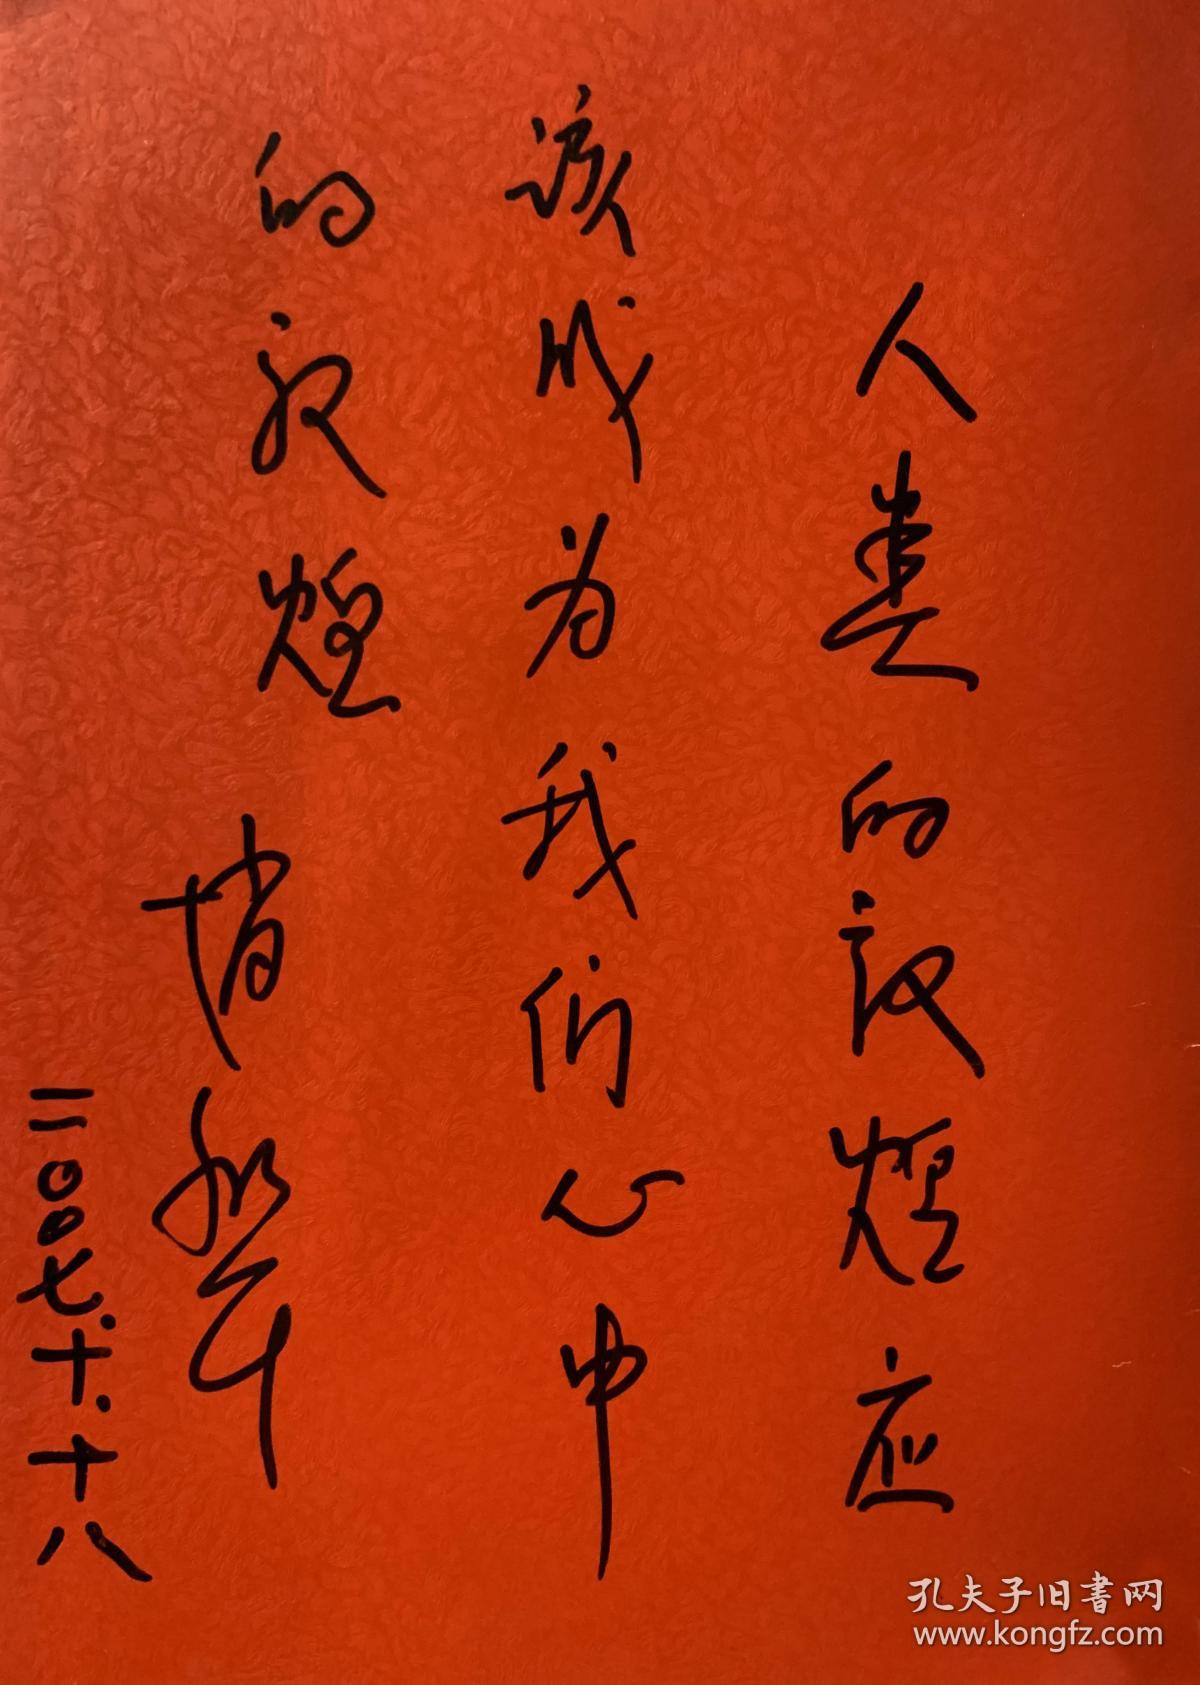 人类的敦煌应
该成为我们心中
的敦煌
二〇〇七.十.十八
孔夫子旧书网
www.kongfz.com